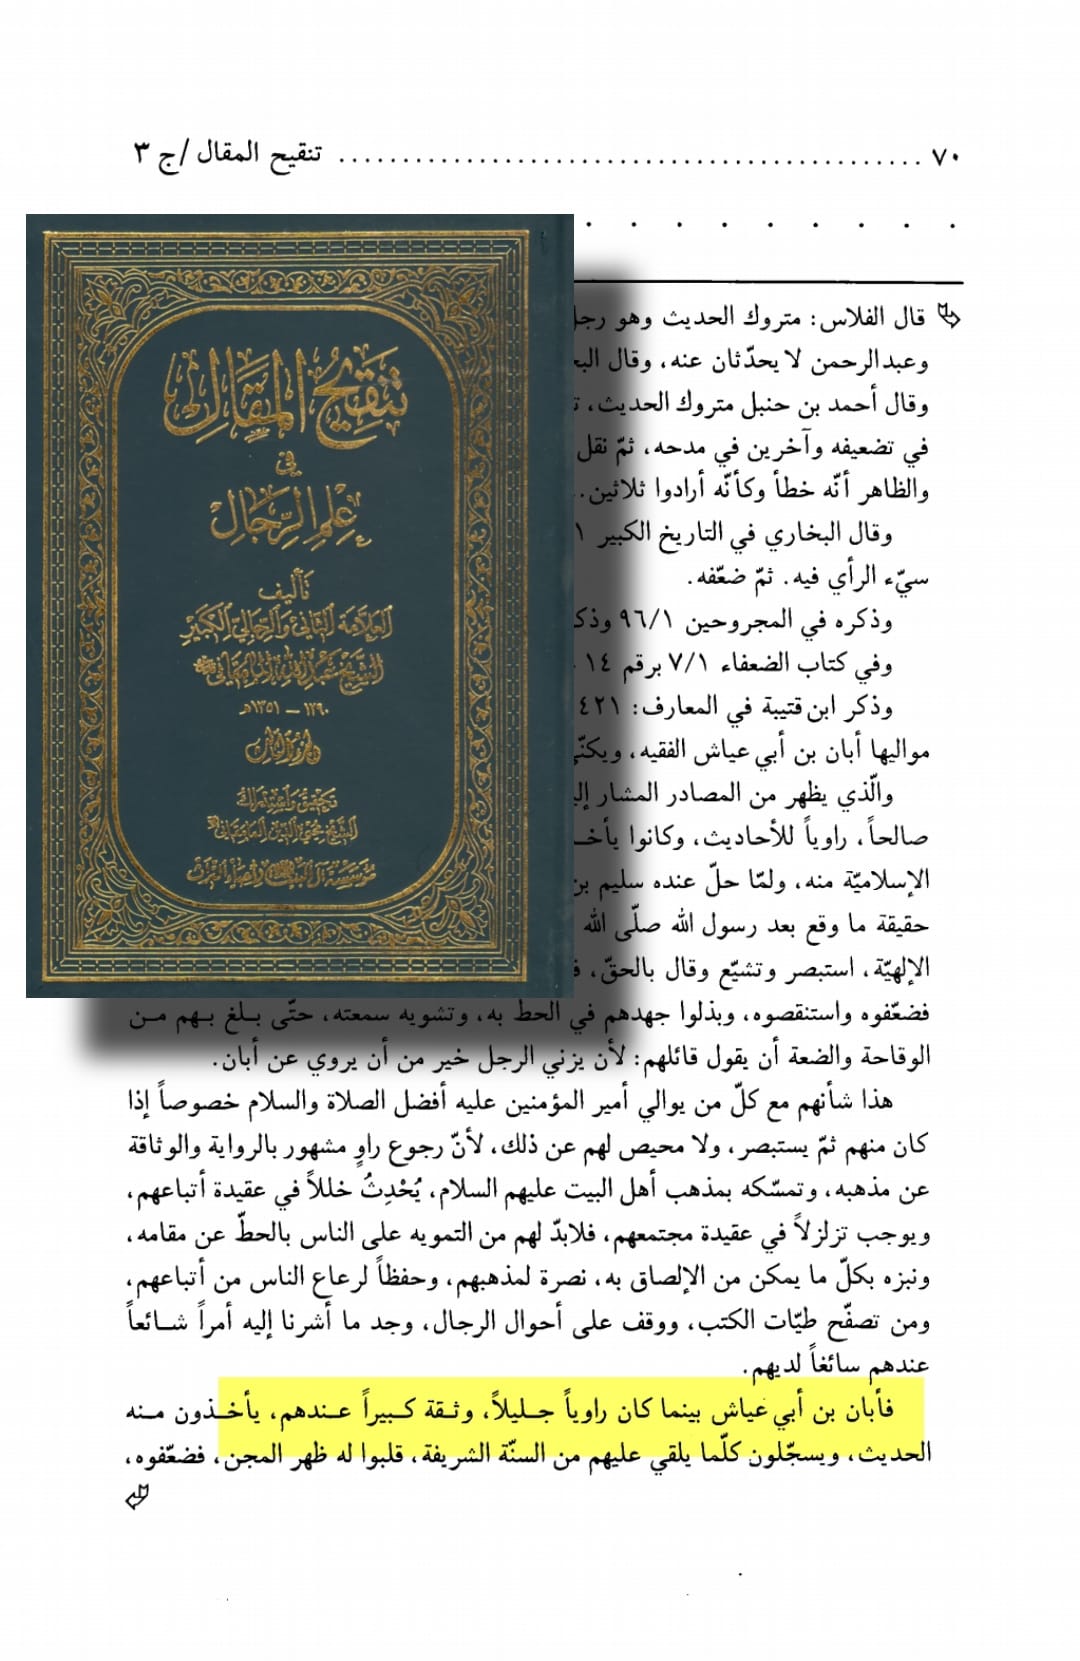 ٧٠ ............................................ تنقيح المقال /ج ٣
تنقيح المقال
في
علم الرجال
تأليف
العلامة الثاني والرجالي الكبير
الشيخ عبد الله المامقاني
١٢٩٠ – ١٣٥١هـ
تحقيق واستدراك
الشيخ محيي الدين المامقاني
مؤسسة آل البيت لإحياء التراث
قال الفلاس: متروك الحديث وهو رجل
وعبدالرحمن لا يحدّثان عنه، وقال
وقال أحمد بن حنبل متروك الحديث،
في تضعيفه وآخرين في مدحه، ثمّ نقل
والظاهر أنّه خطأ وكأنّه أرادوا ثلاثين..
وقال البخاري في التاريخ الكبير ١
سيّء الرأي فيه. ثمّ ضعّفه.
وذكره في المجروحين ٩٦/١
وفي كتاب الضعفاء ٧/١ برقم ١٤
وذكر ابن قتيبة في المعارف: ٤٢١
مواليها أبان بن أبي عياش الفقيه، ويكنّى
والّذي يظهر من المصادر المشار
صالحاً، راوياً للأحاديث، وكانوا
الإسلاميّة منه، ولمّا حلّ عنده سليم بن
حقيقة ما وقع بعد رسول الله صلّى الله
الإلهيّة، استبصر وتشيّع وقال بالحقّ،
فضعّفوه واستنقصوه، وبذلوا جهدهم في الحط به، وتشويه سمعته، حتّى بـلغ بـهم مـن
الوقاحة والضعة أن يقول قائلهم: لأن يزني الرجل خير من أن يروي عن أبان.
هذا شأنهم مع كلّ من يوالي أمير المؤمنين عليه أفضل الصلاة والسلام خصوصاً إذا
كان منهم ثمّ يستبصر، ولا محيص لهم عن ذلك، لأنّ رجوع راوٍ مشهور بالرواية والوثاقة
عن مذهبه، وتمسّكه بمذهب أهل البيت عليهم السلام، يُحْدِثُ خللاً في عقيدة أتباعهم،
ويوجب تزلزلاً في عقيدة مجتمعهم، فلابدّ لهم من التمويه على الناس بالحطّ عن مقامه،
ونبزه بكلّ ما يمكن من الإلصاق به، نصرة لمذهبهم، وحفظاً لرعاع الناس من أتباعهم،
ومن تصفّح طيّات الكتب، ووقف على أحوال الرجال، وجد ما أشرنا إليه أمراً شـائعاً
عندهم سائغاً لديهم.
فأبان بن أبي عياش بينما كان راوياً جـليلاً، وثـقة كـبيراً عـندهم، يأخـذون مـنه
الحديث، ويسجّلون كلّما يلقي عليهم من السنّة الشريفة، قلبوا له ظهر المجن، فضعّفوه،